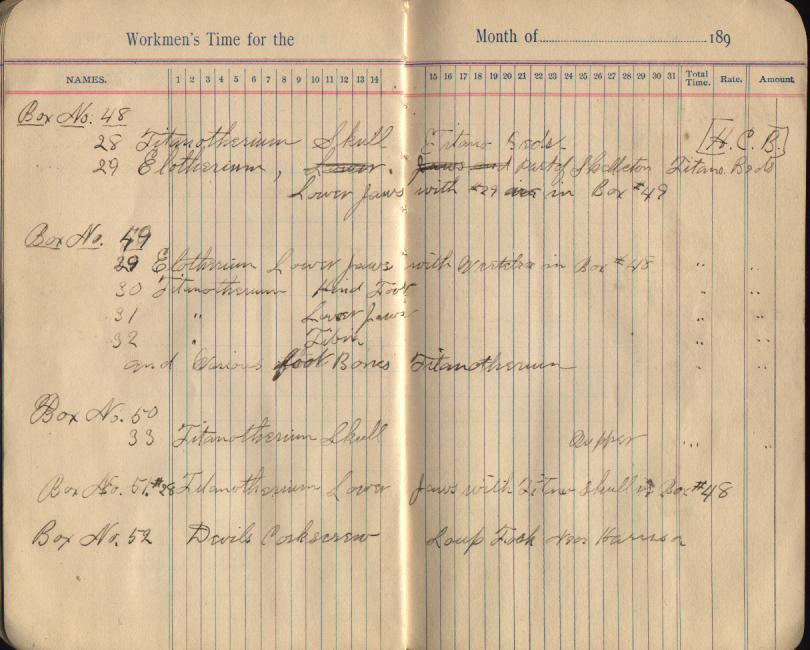 Workmen's Time for the Month of 189
NAMES. 1 2 3 4 5 6 7 8 9 10 11 12 13 14 15 16 17 18 19 20 21 22 23 24 25 26 27 28 29 30 31 Total Time. Rate. Amount
Box No. 48
28 Titanotherium Skull Titano Beds. [H. C. B.]
29 Elotherium, Lower. Jaws and part of Skelleton Titano. Beds
Lower Jaws with #29 in Box #49
Box No. 49
29 Elotherium Lower Jaws with in Box #48 " "
30 Titanotherium Hind Foot " "
31 " Lower Jaws " "
32 " Tibia " "
and Various foot Bones Titanotherium " "
Box No. 50
33 Titanotherium Skull upper " "
Box No. 51. #28 Titanotherium Lower Jaws with Titano Skull in Box #48
Box No. 52 Devils Corkscrew Loup Fork near Harrison